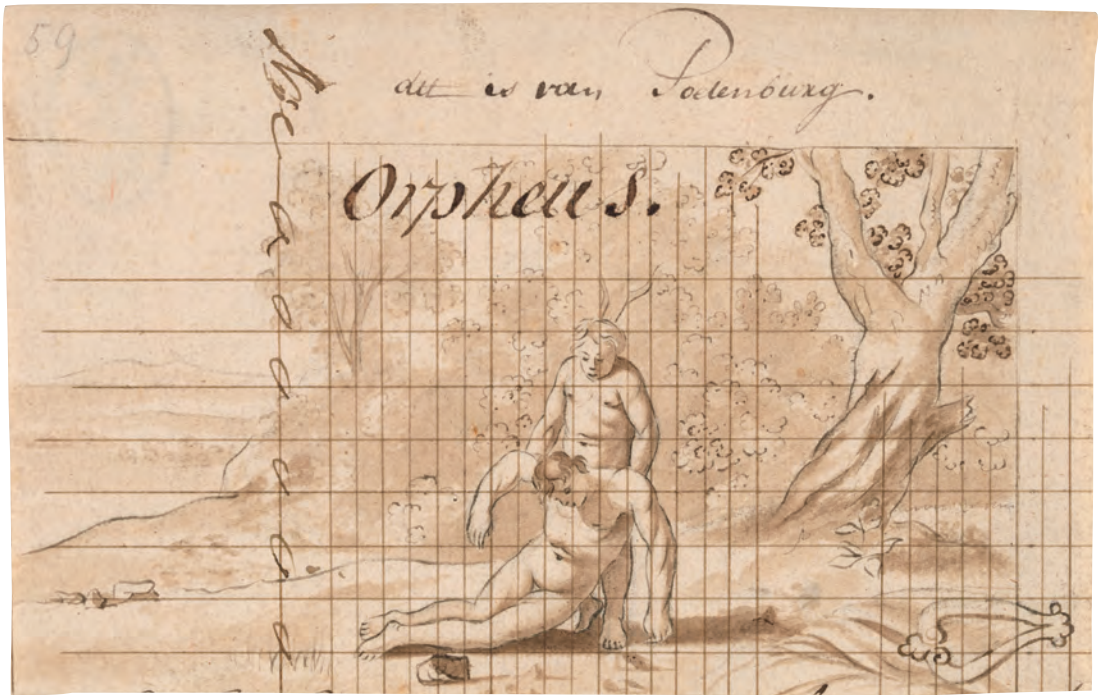 59
dit is van Poelenburg.
Orpheus.